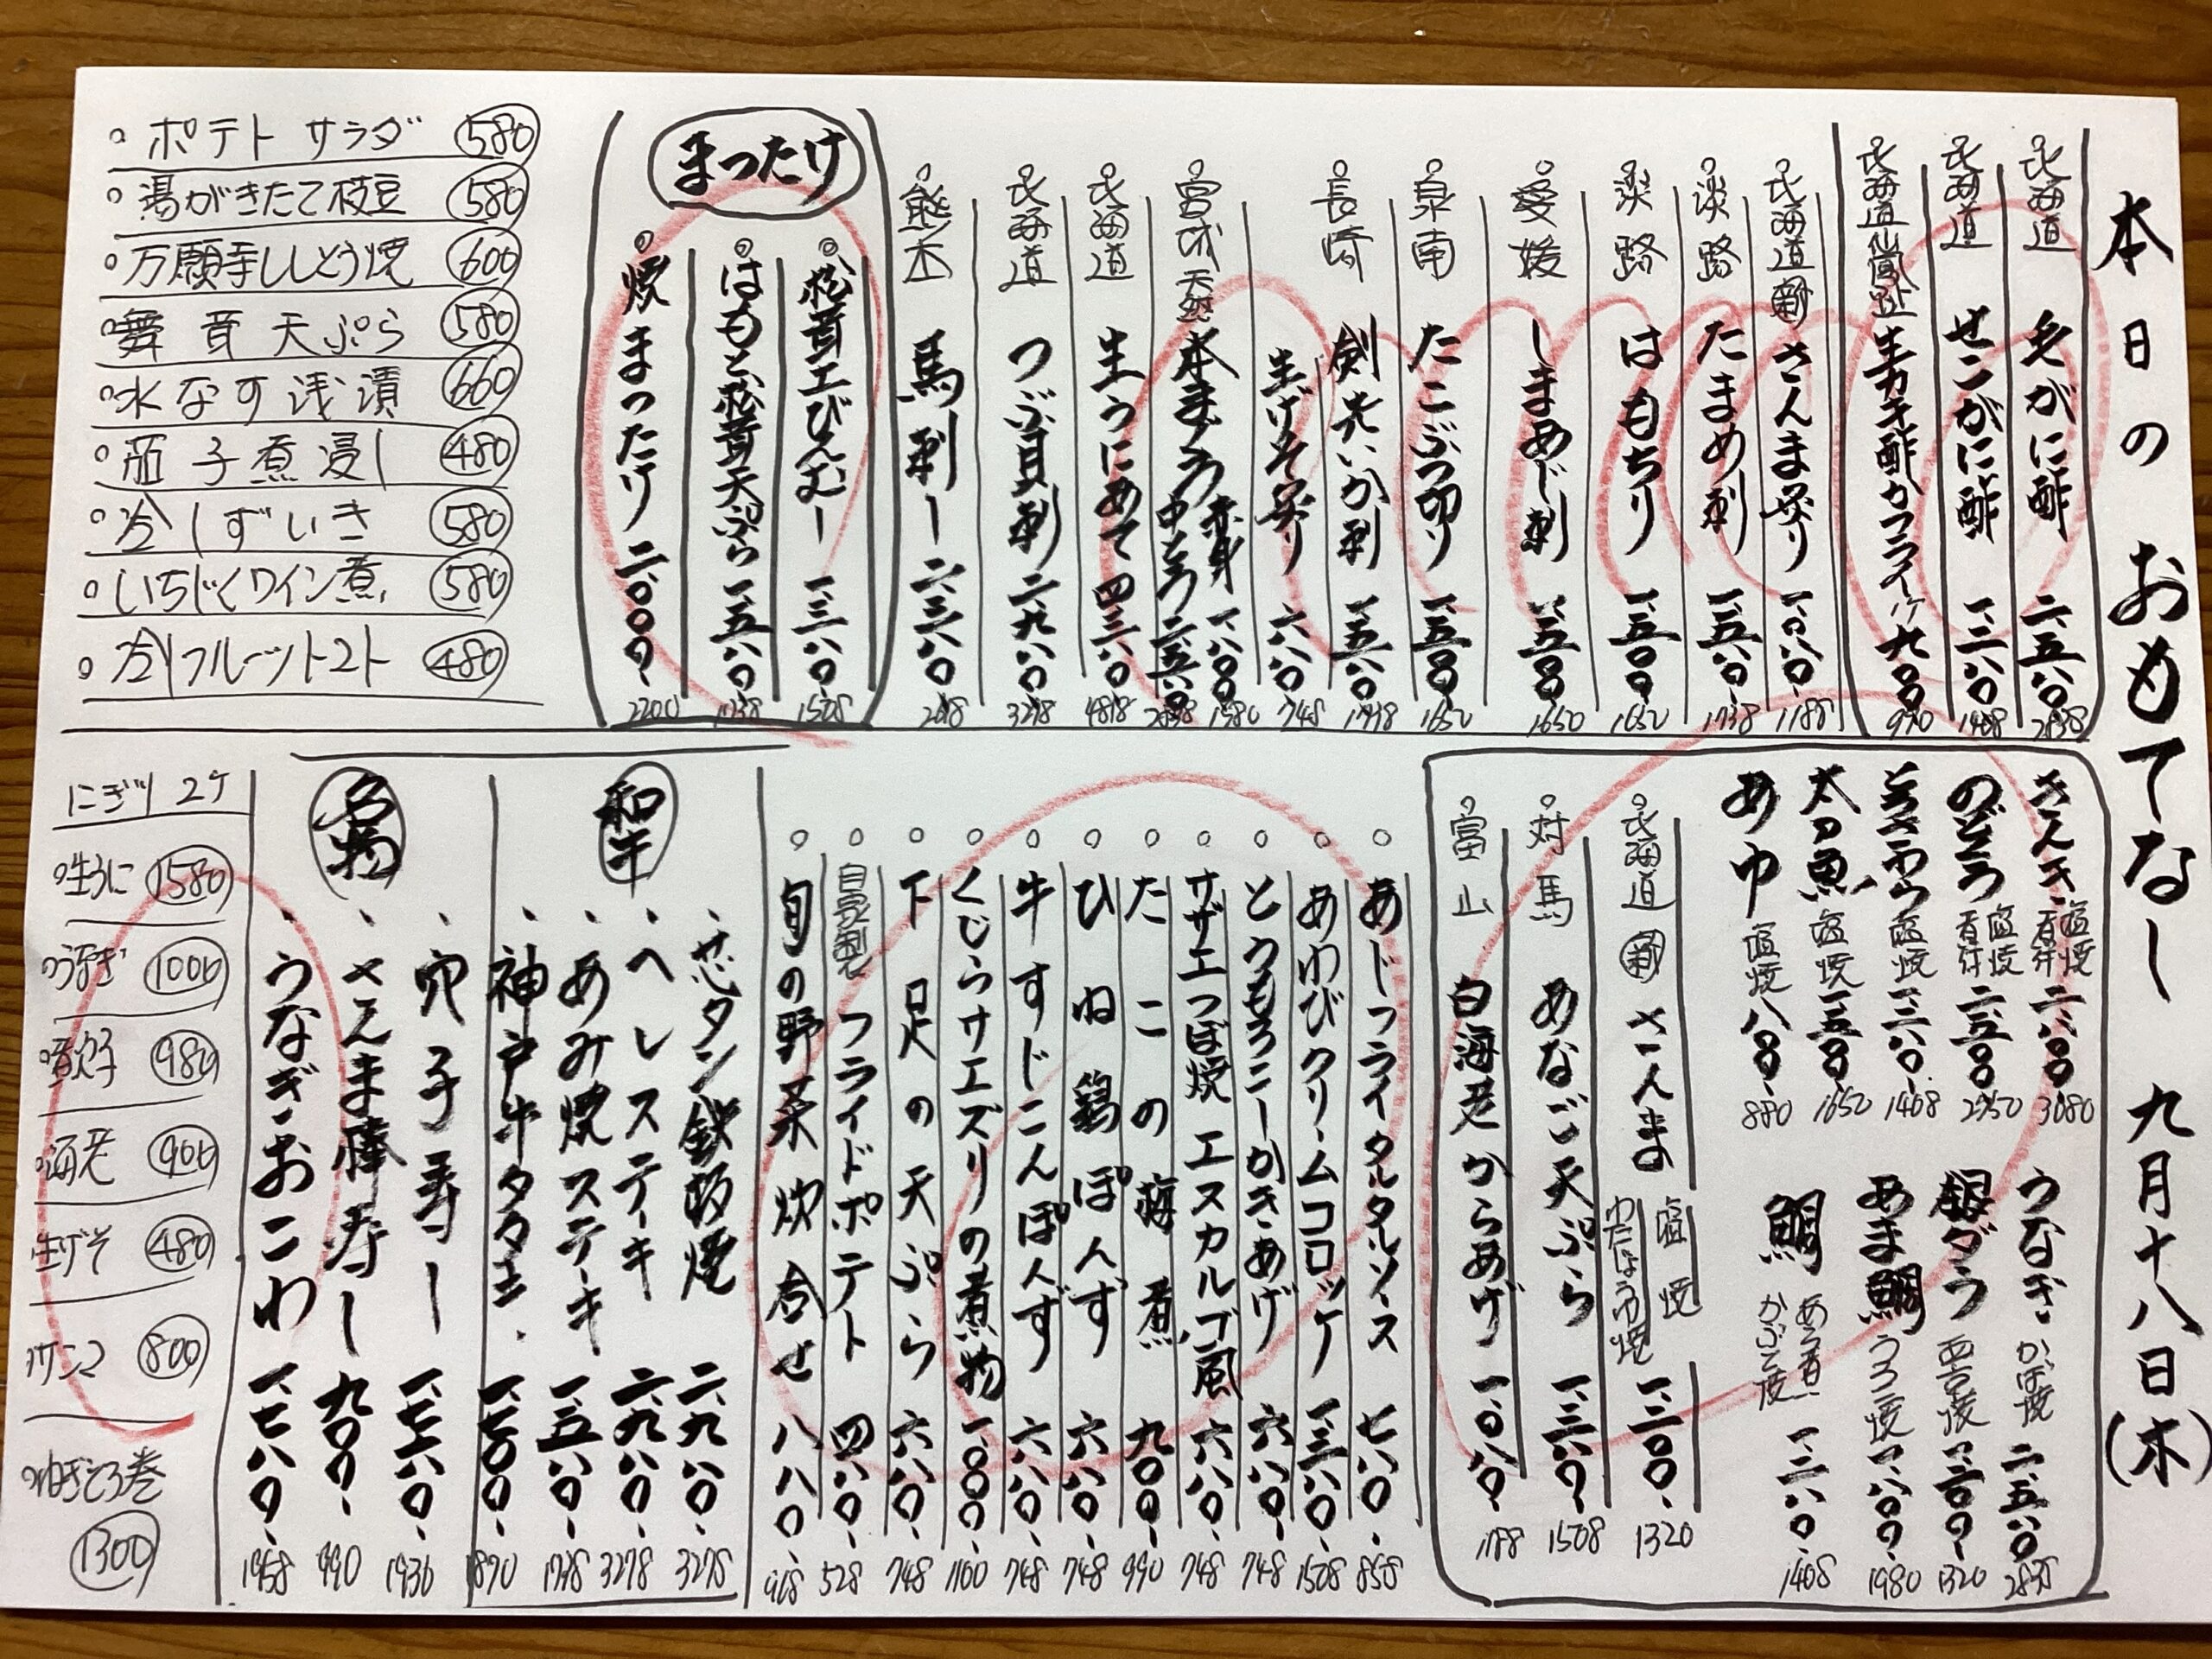 本日のおもてなし 九月十八日(木)
北海道 毛がに酢 二、五八〇 2838
北海道 せこがに酢 一、二八〇 1408
北海道仙鳳趾 生カキ酢カフライ 1ケ 九〇〇 990
北海道 新 さんま造り 一、〇八〇 1188
淡路 たまめ刺 一、五八〇 1738
淡路 はもちり 一、五〇〇 1650
愛媛 しまあじ刺 一、五〇〇 1650
泉南 たこぶつ切り 一、五〇〇 1650
長崎 剣先いか刺
生げそ造り 六八〇 748
宮城 天然 本まぐろ 赤身 一、八〇〇 1980
中とろ 二、五八〇 2838
北海道 生うにあて 四、三八〇 4818
北海道 つぶ貝刺 二、九八〇 3278
熊本 馬刺し 二、三八〇 2618
まったけ
松茸土びんむし 一、三八〇 1508
はもと松茸天ぷら 一、五八〇 1738
焼まったけ 二、〇〇〇 2200
ポテトサラダ 580
湯がきたて枝豆 580
万願寺ししとう焼 600
舞茸天ぷら 580
水なす浅漬 660
茄子煮浸し 480
冷しずいき 580
いちじくワイン煮 580
冷しフルーツトマト 480
きんき 塩焼 煮付 二、八〇〇 3080
のどぐろ 塩焼 煮付 二、五〇〇 2750
塩焼 一、二八〇 1408
太刀魚 塩焼 一、五〇〇 1650
あゆ 塩焼 八〇〇 880
うなぎ かば焼 二、五八〇 2838
銀ダラ 西京焼 一、二〇〇 1320
あま鯛 うろこ焼 一、八〇〇 1980
鯛 あら煮 かぶと焼 一、二八〇 1408
北海道 新 さんま 塩焼 わたほうば焼 一、二〇〇 1320
対馬 あなご天ぷら 一、三八〇 1508
富山 白海老からあげ 一、〇八〇 1188
あじフライタルタルソース 七八〇 858
あわびクリームコロッケ 一、三八〇 1508
とうもろこしかきあげ 六八〇 748
サザエつぼ焼 エスカルゴ風 六八〇 748
たこの柔煮 九〇〇 990
ひね鶏ぽんず 六八〇 748
牛すじこんぽんず 六八〇 748
くじらサエズリの煮物 一、〇〇〇 1100
下足の天ぷら 六八〇 748
自家製 フライドポテト 四八〇 528
旬の野菜炊合せ 八八〇 968
和牛
芯タン鉄板焼 二、九八〇 3278
ヘレステーキ 二、九八〇 3278
あみ焼ステーキ 一、五八〇 1738
神戸牛タタキ 一、七〇〇 1870
名物
穴子寿し 一、七六〇 1936
さんま棒寿し 九〇〇 990
うなぎおこわ 一、七八〇 1958
にぎり 2ケ
生うに 1580
うなぎ 1000
980
海老 900
生げそ 480
サンマ 800
ねぎとろ巻 1300